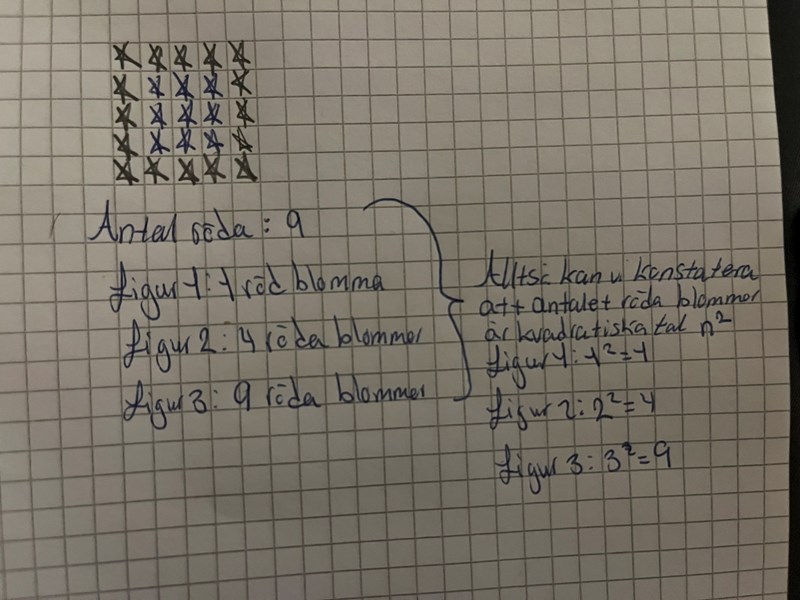 Antal röda: 9
figur 1: 1 röd blomma
figur 2: 4 röda blommor
figur 3: 9 röda blommor
Alltså kan vi konstatera
att antalet röda blommor
är kvadratiska tal n²
figur 1: 1²=1
figur 2: 2²=4
figur 3: 3²=9